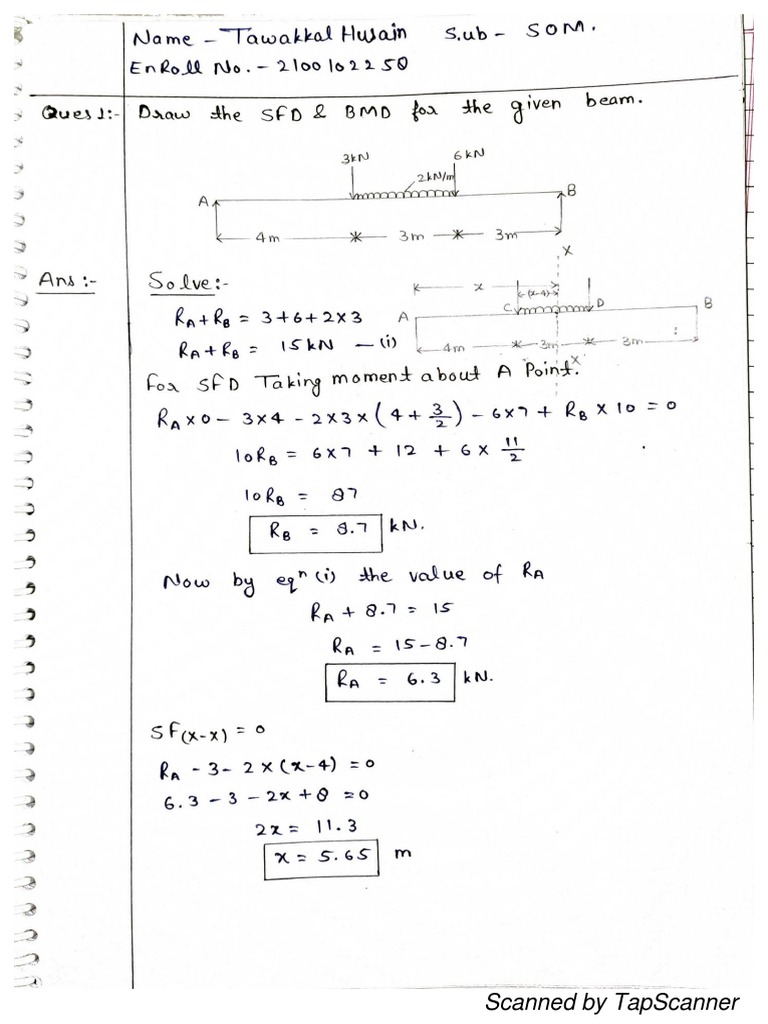 Name - Tawakkal Husain Sub - SOM.
EnRoll No. - 2100102250
Ques 1:- Draw the SFD & BMD for the given beam.
3kN 6kN
2kN/m
A B
4m 3m 3m
X
Ans :- Solve:-
x (x-4)
RA + RB = 3+6+2×3
A C D B
RA + RB = 15kN —(i)
4m 3m 3m
X
For SFD Taking moment about A Point.
RA×0 - 3×4 - 2×3×(4 + 3/2) - 6×7 + RB×10 = 0
10RB = 6×7 + 12 + 6 × 11/2
10RB = 87
RB = 8.7 kN.
Now by eqn (i) the value of RA
RA + 8.7 = 15
RA = 15-8.7
RA = 6.3 kN.
SF(x-x) = 0
RA - 3 - 2×(x-4) = 0
6.3 - 3 - 2x + 8 = 0
2x = 11.3
x = 5.65 m
Scanned by TapScanner